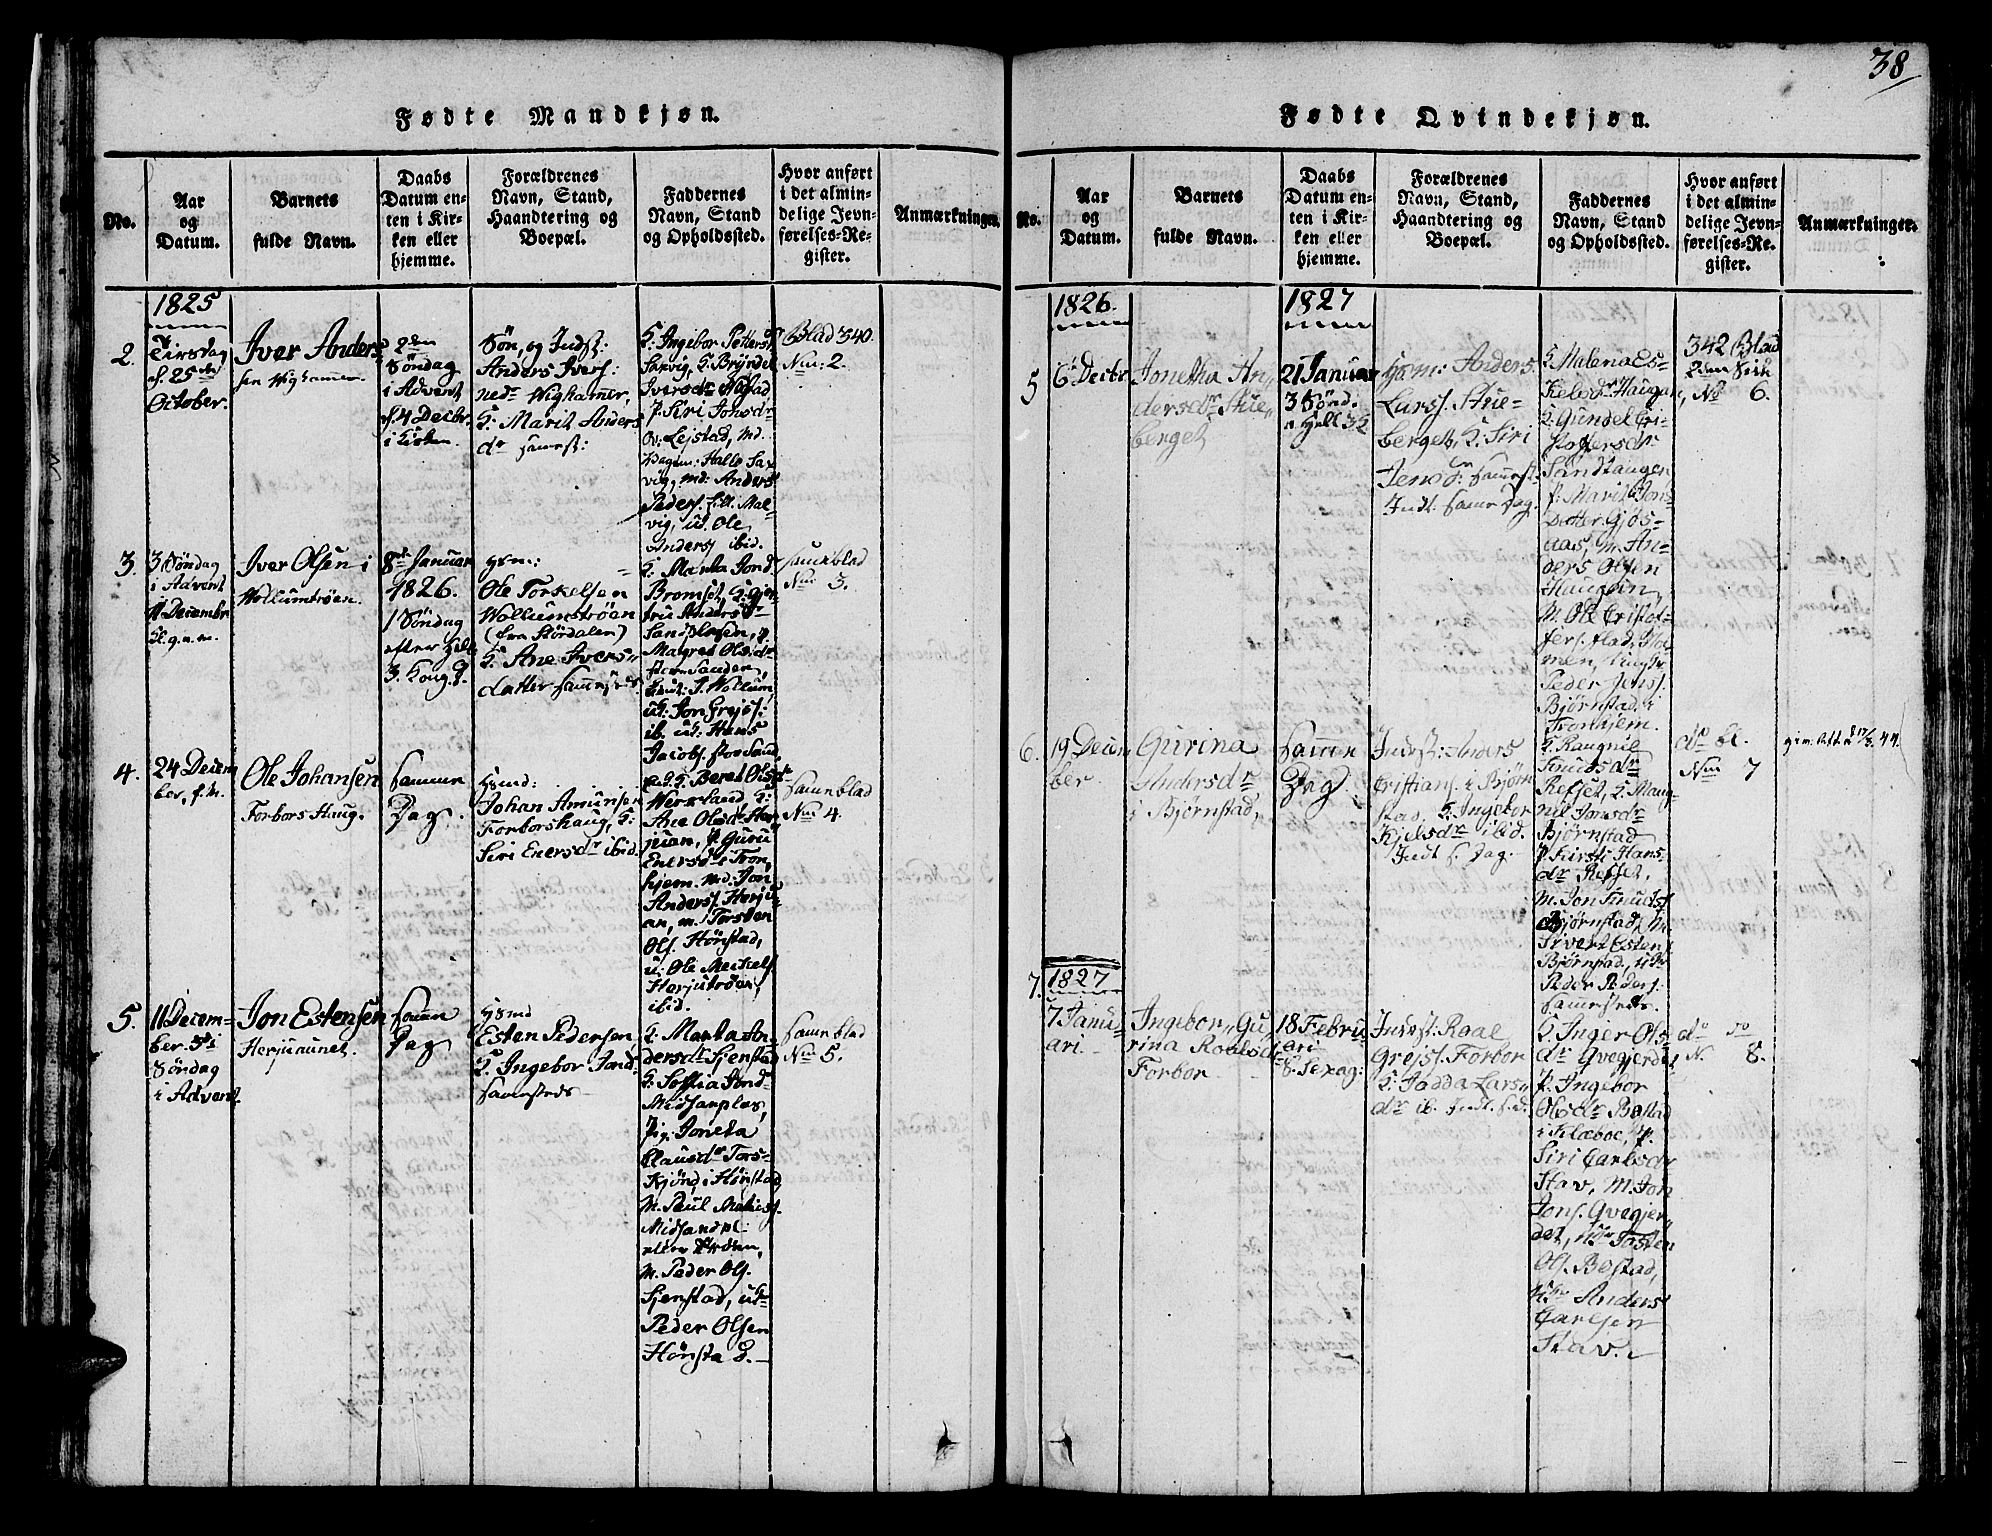 38
Fødte Mandkjøn.
No.
Aar
og
Datum.
Barnets
fulde Navn.
Daabs
Datum en-
ten i Kir-
ken eller
hjemme.
Forældrenes
Navn, Stand,
Haandtering og
Boepæl.
Faddernes
Navn, Stand
og Opholdssted.
Hvor anført
i det almin-
delige Jevn-
førelses-Re-
gister.
Anmærkninger.
1825
2.
Tirsdag
d. 25de
October.
Iver Anders
sen Wighammer
2den
Søndag
i Advent
d. 4 Decbr.
i Kirken
Søn, og Indst:
Anders Ivers:
ned. Wighammer,
K: Marit Anders
dr samest:
K. Ingebor Petters
Saxvig, K. Bryndel
Iversdr
P. Siri Jonsdr
Ov. Lejstad, Md.
Halle Sax
vig, md: Anders
Peders. lill. Mal-
vig, u. Ole
Anders ibid.
Blad 340.
Num: 2.
3.
3 Søndag
i Advent
11 December
Iver Olsen i
Wollumtrøan.
8de Januar
1826.
1 Søndag
efter Hell.
3. Kong. D.
Hsm:
Ole Torkelsen
Wollumstrøan
(fra Stördalen)
K. Ane Ivers-
datter sammesteds
K. Marta Jond
Bromset, K. Gjer
tru Andersdr
Sandplassen, p.
Magret Olsdr
Sanden,
J. Wollum,
u: Jon Grejs:
ib. u: Hans
Jacobs. store Sand
sameblad
Num 3.
4.
24 Decem
ber, f. M.
Ole Johansen
Forbors Haug.
Samme
Dag.
Hsmd:
Johan Amunsen
Forborshaug, K:
Siri Enersdr ibid.
K. Beret Olsdr
Werxland K:
Ane Olsdr Her
juan, P Guru
Enersdr i Tron
hjem. Md. Jon
Anders Herju
an, m. Torsten
Ols. Hønstad,
u: Ole Meikels
Herjutrøen,
ibid.
Sameblad
Num 4.
5.
11 Decem-
ber 3die
Søndag
i Advent
Jon Estensen
Herjuaunet.
Samme
Dag
Hsmd
Esten Pedersen
K. Ingebor Jond:
samesteds
K. Marta An
dersdr Sjenstad
K. Soffia Jond
Midsanplas,
Pig: Joneta
Clausdr Tors-
Kjønd i Hønstad
M. Paul
Midsandpl:
M. Peder Ols.
Sjenstad, u:
Peder Olsen
Hønstad.
Sameblad
Num 5.
Fødte Qvindekjøn.
No.
Aar
og
Datum.
Barnets
fulde Navn.
Daabs
Datum en-
ten i Kir-
ken eller
hjemme.
Forældrenes
Navn, Stand,
Haandtering og
Boepæl.
Faddernes
Navn, Stand
og Opholdssted.
Hvor anført
i det almin-
delige Jevn-
førelses-Re-
gister.
Anmærkninger.
1826.
1827
5
6t Decbr
Jonetha An-
dersdr Stue-
berget
21 Januar
3 Sønd.
Hsm: Anders
Larss. Stue-
berget, K. Siri
Jensdr: samest.
Indt. samme Dag.
K. Malena Es-
kelsdr Haugan,
K. Gundel Cri-
stoffersdr
Sandhaugen
P. Marit Jon
datter Gjøs-
aas, M. An-
ders Olsen
Haugan,
M. Ole Cristof-
fers.
Peder Jens.
Bjørnstad i
Tronhjem.
342 Blad
No 6.
6.
19 Decem
ber.
Gurina
Andersdr
i Bjørnstad,
Samme
Dag.
Indrst: Anders
Cristians. i Bjørn
stad, K. Ingebor
Kjelsdr ibid.
Indt. s. Dag.
K. Raugnil
Knudsdr
Refset, K. Raug-
nil Jonsdr
Bjørnstad
P. Kirsti Hans
dr Refset,
M. Jon Knuds
Bjørnstad, M.
Sivert Esten
Bjørnstad, u
Peder Peders.
samesteds.
do bl.
Num 7
1827
7.
7 Janu-
ari.
Ingebor Gu
rina Roalsdr
Forbor
18 Febru
ari
S. Sexag:
Indrst: Raal
Grejs. Forbor
K: Jadda Lars-
dr ib. Indt. s. d.
K. Inger Ols-
dr Qvegjerdet,
P. Ingebor
Olsdr Bostad
i Klæboe, P.
Siri Carlsdr
Stav, M. Jon
Jons. Qvegjer-
det, Tosten
Ols. Bostad,
Anders
Carlsen
Stav.
do do
N. 8.